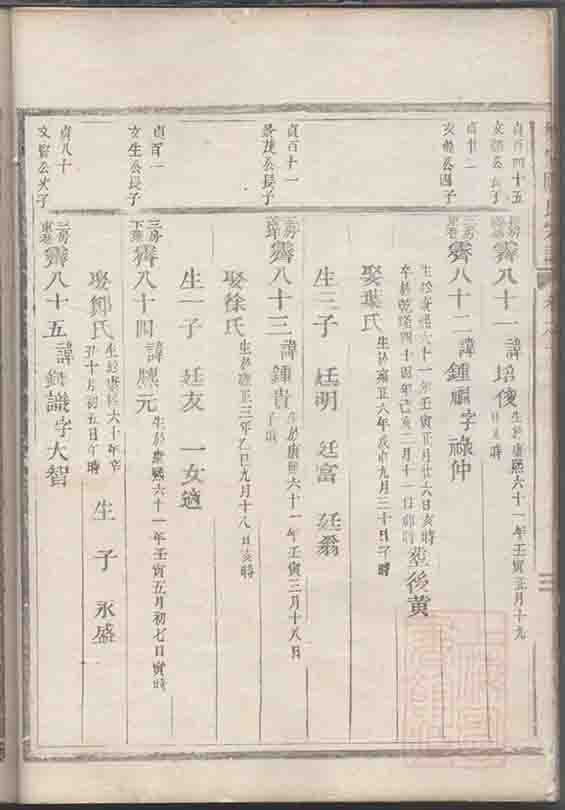 貞百四十五
長子
霽八十一 諱培俊 生於康熙六十一年壬寅正月十九
時
貞廿二
公四子
三房
東巷
霽八十二 諱鍾 字祿仲
生於康熙六十一年壬寅正月廿六日亥時
卒於乾隆四十四年己亥二月十一日卯時 葬後黃
娶葉氏 生於雍正六年戊申九月三十日子時
生三子 廷明 廷富 廷翁
貞百十一
公長子
三房
霽八十三 諱鍾貴 生於康熙六十一年壬寅三月十八日
子時
娶徐氏 生於雍正三年乙巳九月十八日亥時
生一子 廷友 一女適
貞百一
文生公長子
三房
下巷
霽八十四 諱 元 生於康熙六十一年壬寅五月初七日寅時
娶鄭氏 生於康熙六十年辛
丑十月初五日午時 生 子 永盛
貞八十
文官公次子
三房
東巷
霽八十五 諱 識字大智